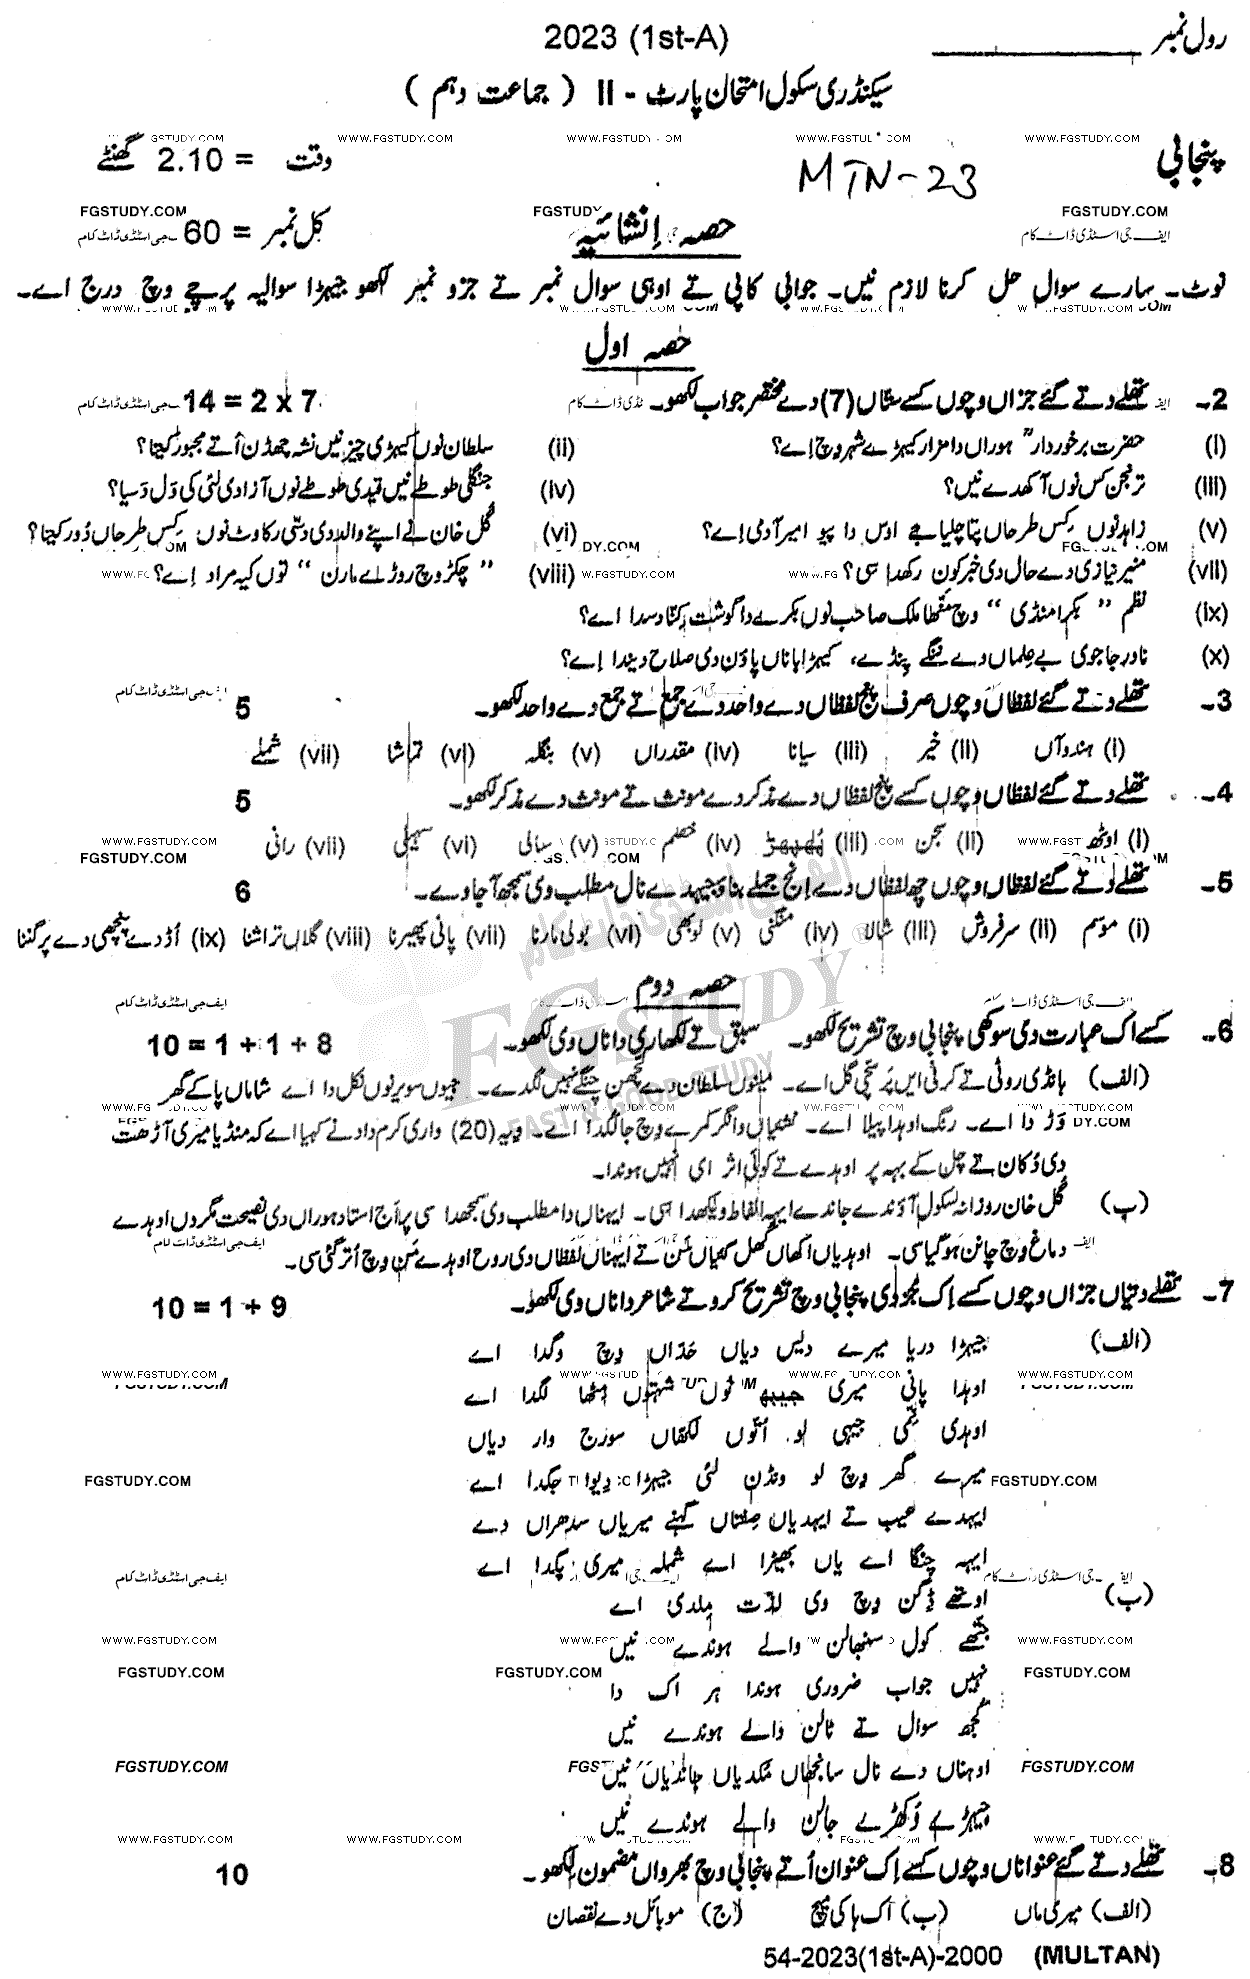 2023 (1st-A)
رول نمبر
سیکنڈری سکول امتحان پارٹ - II ( جماعت دہم )
WWW.FGSTUDY.COM
پنجابی
MTN-23
وقت = 2.10 گھنٹے
FGSTUDY.COM
حصہ اِنشائیہ
کُل نمبر = 60
نوٹ۔ سارے سوال حل کرنا لازم نیں۔ جوابی کاپی تے اوہی سوال نمبر تے جزو نمبر لکھو جیہڑا سوالیہ پرچے وچ درج اے۔
حصہ اول
2۔ تھلے دتے گئے جزاں وچوں کسے ستاں (7) دے مختصر جواب لکھو۔ 14 = 2 x 7
(i) حضرت برخوردارؒ ہوراں دا مزار کیہڑے شہر وچ اے؟ (ii) سلطان نوں کیہڑی چیز نیں نشہ چھڈن اُتے مجبور کیتا؟
(iii) ترنجن کس نوں آکھدے نیں؟ (iv) جنگلی طوطے نیں قیدی طوطے نوں آزادی لئی کی وَل دَسیا؟
(v) زاہد نوں کِس طرحاں پتا چلیا جے اوس دا پیو امیر آدمی اے؟ (vi) گُل خان نے اپنے والد دی دسّی رکاوٹ نوں کِس طرحاں دُور کیتا؟
(vii) منیر نیازی دے حال دی خبر کون رکھدا سی؟ (viii) " چکڑ وچ روڑاے مارن " توں کیہ مراد اے؟
(ix) نظم " بکرا منڈی " وچ مٹھا ملک صاحب نوں بکرے دا گوشت کِنّا دسدا اے؟
(x) نادر جاجوی بے عِلماں دے ننگے پِنڈے، کیہڑا بانا پاؤن دی صلاح دیندا اے؟
3۔ تھلے دتے گئے لفظاں وچوں صرف پنج لفظاں دے واحد دے جمع تے جمع دے واحد لکھو۔ 5
(i) ہندوآں (ii) خیر (iii) سیانا (iv) مقدراں (v) بنگلہ (vi) تماشا (vii) شملے
4۔ تھلے دتے گئے لفظاں وچوں کسے پنج لفظاں دے مذکر دے مونث تے مونث دے مذکر لکھو۔ 5
(i) اوٹھ (ii) سجن (iii) (iv) خصم (v) سالی (vi) سہیلی (vii) رانی
5۔ تھلے دتے گئے لفظاں وچوں چھ لفظاں دے اِنج جملے بناؤ جیہدے نال مطلب وی سمجھ آ جاوے۔ 6
(i) موسم (ii) سرفروش (iii) شالا (iv) منگنی (v) لوبھی (vi) بولی مارنا (vii) پانی پھیرنا (viii) گلاں تراشنا (ix) اُڈدے پنچھی دے پر گننا
FGSTUDY
FAST & GOOD STUDY
حصہ دوم
6۔ کسے اک عبارت دی سوکھی پنجابی وچ تشریح لکھو۔ سبق تے لکھاری دا ناں وی لکھو۔ 10 = 1 + 1 + 8
(الف) ہانڈی روٹی تے کرنی ایں پر سچی گل اے۔ مینوں سلطان دے لچھن چنگے نہیں لگدے۔ جیوں سویر نوں نکل دا اے شاماں پا کے گھر
وَڑ دا اے۔ رنگ اوہدا پیلا اے۔ نشئیاں وانگر کمرے وچ جا لگدا اے۔ ویہہ (20) واری کرم داد نے کہیا اے کہ منڈیا میری آڑھت
دی دُکان تے چل کے بہہ پر اوہدے تے کوئی اثر ای نہیں ہوندا۔
(ب) گُل خان روزانہ سکول آؤندے جاندے ایہہ الفاظ ویکھدا سی۔ ایہناں دا مطلب وی سمجھدا سی پر اَج استاد ہوراں دی نصیحت مگروں اوہدے
دماغ وچ چانن ہو گیا سی۔ اوہدیاں اکھاں کھُل گئیاں سَن تے ایہناں لفظاں دی روح اوہدے مَن وچ اُتر گئی سی۔
7۔ تھلے دتیاں جزاں وچوں کسے اِک جُز دی پنجابی وچ تشریح کرو تے شاعر دا ناں وی لکھو۔ 10 = 1 + 9
(الف) جیہڑا دریا میرے دیس دیاں حدّاں وچ وگدا اے
اوہدا پانی میری جیبھ نوں شہتوں مِٹھا لگدا اے
اوہدی نِمّی جیہی لو اُتوں لکھّاں سورج وار دیاں
میرے گھر وچ لو ونڈن لئی جیہڑا دیوا جگدا اے
ایہدے عیب تے ایہدیاں صِفتاں گہنے میریاں سدھراں دے
ایہہ چنگا اے یاں بھیڑا اے شملہ میری پگدا اے
(ب) اوتھے ڈِگن وچ وی لذّت مِلدی اے
جتھے کول سنبھالن والے ہوندے نیں
نہیں جواب ضروری ہوندا ہر اک دا
کُجھ سوال تے ٹالن والے ہوندے نیں
اوہناں دے نال سانجھاں مُکدیاں جاندیاں نیں
جیہڑے دُکھڑے جالن والے ہوندے نیں
8۔ تھلے دتے گئے عنواناں وچوں کسے اِک عنوان اُتے پنجابی وچ بھرواں مضمون لکھو۔ 10
(الف) میری ماں (ب) اک ہاکی میچ (ج) موبائل دے نقصان
54-2023(1st-A)-2000 (MULTAN)